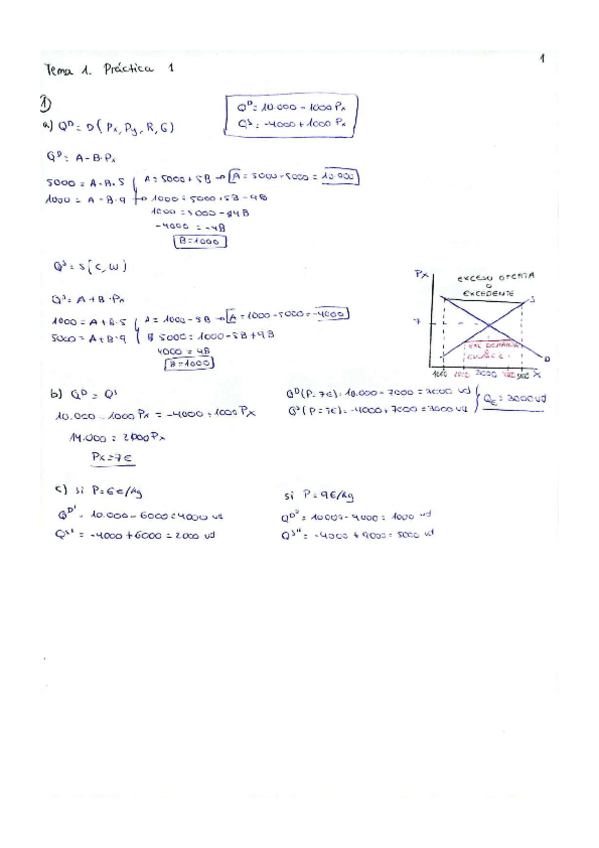 1
Tema 1. Práctica 1
1)
Q^D = 10.000 - 1000 Px
Q^S = -4000 + 1000 Px
a) Q^D = D( Px, Py, R, G)
Q^D = A - B·Px
5000 = A - B·5
A = 5000 + 5B → A = 5000 - 5000 = 10.000
1000 = A - B·9
→ 1000 = 5000 + 5B - 9B
1000 = 5000 - 4B
-4000 = -4B
B = 1000
Q^S = S( C, W)
Q^S = A + B·Px
1000 = A + B·5
A = 1000 - 5B → A = 1000 - 5000 = -4000
5000 = A + B·9
5000 = 1000 - 5B + 9B
4000 = 4B
B = 1000
Px
EXCESO OFERTA
O
EXCEDENTE
S
7
EXC DEMANDA
D
1000
3000
X
b) Q^D = Q^S
10.000 - 1000 Px = -4000 + 1000 Px
14.000 = 2000 Px
Px = 7€
Q^D (P=7€) = 10.000 - 7000 = 3000 ud
Q^S (P=7€) = -4000 + 7000 = 3000 ud
Q_E = 3000 ud
c) si P=6€/kg
Q^D' = 10.000 - 6000 = 4000 ud
Q^S' = -4000 + 6000 = 2000 ud
si P=9€/kg
Q^D'' = 10000 - 9000 = 1000 ud
Q^S'' = -4000 + 9000 = 5000 ud